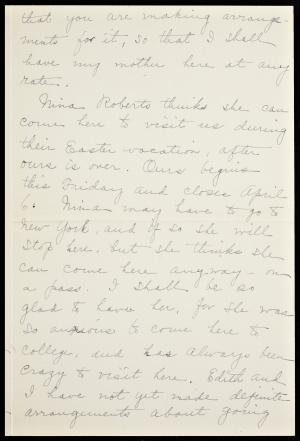 that you are making arrange-
ments for it, so that I shall
have my mother here at any
rate.
Nina Roberts thinks she can
come here to visit us during
their Easter vacation, after
ours is over. Ours begins
this Friday and closes April
6. Nina may have to go to
New York, and if so she will
stop here, but she thinks she
can come here anyway - on
a pass. I shall be so
glad to have her, for she was
so anxious to come here to
college, and has always been
crazy to visit here. Edith and
I have not yet made definite
arrangements about going